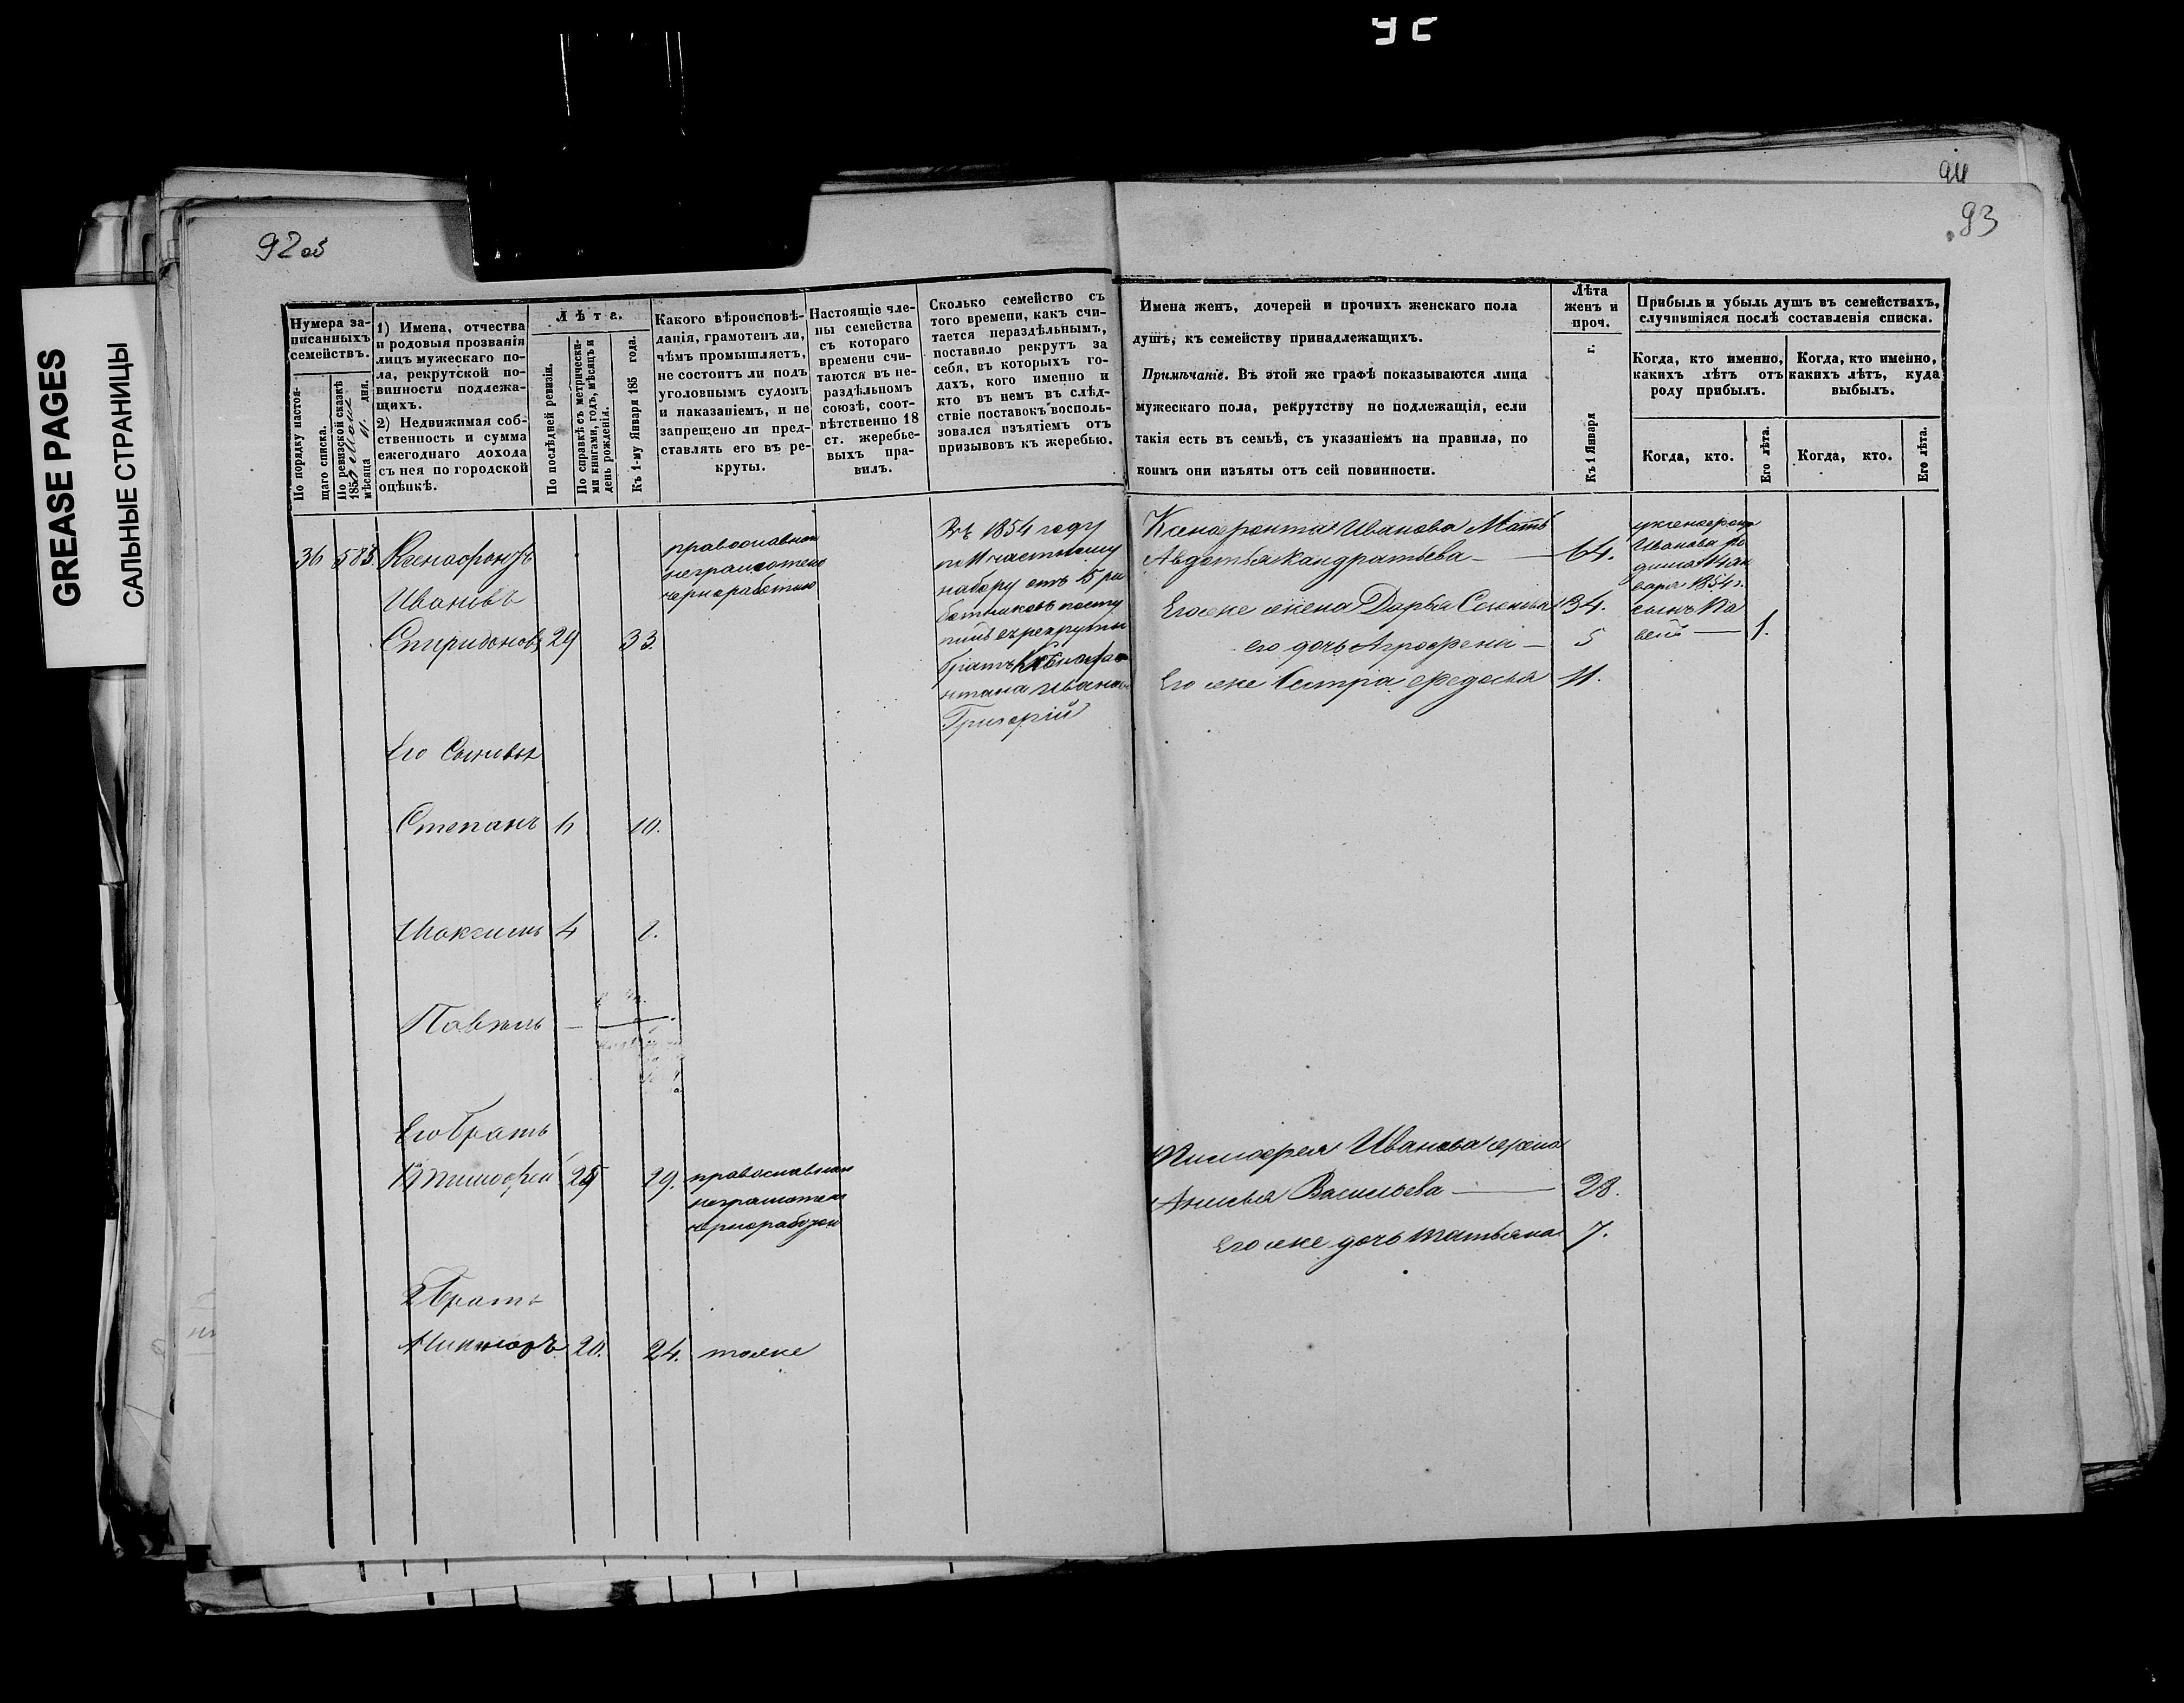 92 об
94
93
GREASE PAGES
САЛЬНЫЕ СТРАНИЦЫ
Нумера за-
писанныхъ
семействъ.
По порядку настоя-
щаго списка.
По ревизской сказкѣ
185
мѣсяца
дня.
1) Имена, отчества
и родовыя прозванія
лицъ мужескаго по-
ла, рекрутской по-
винности подлежа-
щихъ.
2) Недвижимая соб-
ственность и сумма
ежегоднаго дохода
съ нея по городской
оцѣнкѣ.
Лѣта.
По послѣдней ревизіи.
По справкѣ съ метрически-
ми книгами, годъ, мѣсяцъ и
день рожденія.
Къ 1-му Января 185 года.
Какого вѣроисповѣ-
данія, грамотенъ ли,
чѣмъ промышляетъ,
не состоитъ ли подъ
уголовнымъ судомъ
и наказаніемъ, и не
запрещено ли пред-
ставлять его въ ре-
круты.
Настоящіе чле-
ны семейства
съ котораго
времени счи-
таются въ не-
раздѣльномъ
союзѣ, соот-
вѣтственно 18
ст. жеребье-
выхъ пра-
вилъ.
Сколько семейство съ
того времени, какъ счи-
тается нераздѣльнымъ,
поставило рекрутъ за
себя, въ которыхъ го-
дахъ, кого именно и
кто въ немъ въ слѣд-
ствіе поставокъ восполь-
зовался изъятіемъ отъ
призывовъ къ жеребью.
Имена женъ, дочерей и прочихъ женскаго пола
душъ, къ семейству принадлежащихъ.
Примѣчаніе. Въ этой же графѣ показываются лица
мужескаго пола, рекрутству не подлежащія, если
такія есть въ семьѣ, съ указаніемъ на правила, по
коимъ они изъяты отъ сей повинности.
Лѣта
женъ и
проч.
Къ 1 Января г.
Прибыль и убыль душъ въ семействахъ,
случившіяся послѣ составленія списка.
Когда, кто именно,
какихъ лѣтъ отъ
роду прибылъ.
Когда, кто именно,
какихъ лѣтъ, куда
выбылъ.
Когда, кто.
Его лѣта.
Когда, кто.
Его лѣта.
36 583. Ксенофонтъ
Ивановъ
Спиридоновъ 29 33.
православный
неграмотенъ
чернорабочій
Въ 1854 году
по 11 частному
набору отъ 15 ра
ботниковъ посту
пилъ въ рекруты
братъ Ксенофо
нта Иванова
Григорій
Ксенофонта Иванова Мать
Авдотья Кандратьева — 64.
Его же жена Дарья 34.
его дочь Агрофена — 5
Его же Сестра Федосья 11.
у Ксенофонта
Иванова ро
дился 14 ян
варя 1854 г.
сынъ Па
велъ — 1.
Его Сыновья
Степанъ 6 10.
Максимъ 4 8.
Павелъ —
Его братъ
1й Тимофей 25 29. православный
неграмотенъ
чернорабочій
Тимофея Иванова жена
Анисья Васильева — 28.
Его же дочь Татьяна 7.
2 братъ
Никифоръ 20. 24. тоже